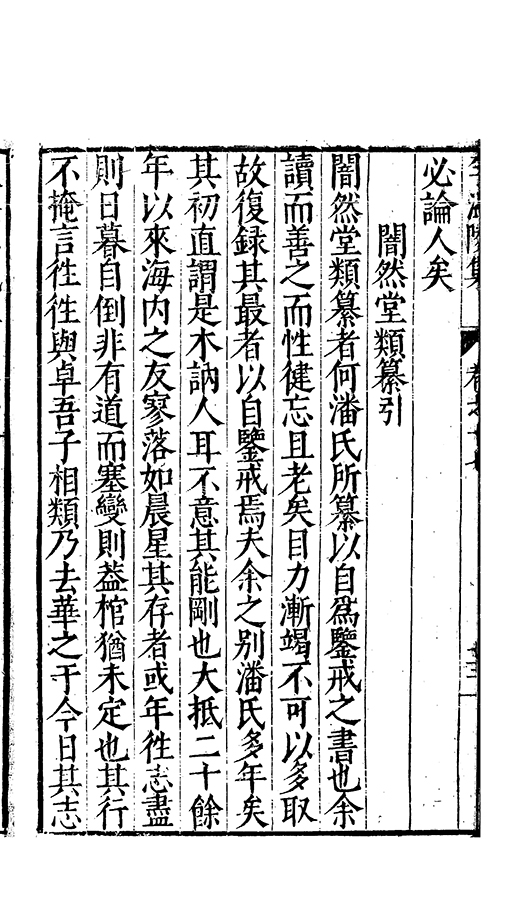 必論人矣
闇然堂類纂引
闇然堂類纂者何潘氏所纂以自爲鑒戒之書也余
讀而善之而性健忘且老矣目力漸竭不可以多取
故復録其最者以自鑒戒焉夫余之别潘氏多年矣
其初直謂是木訥人耳不意其能剛也大抵二十餘
年以來海内之友寥落如晨星其存者或年徃志盡
則日暮自倒非有道而塞變則葢棺猶未定也其行
不掩言徃徃與卓吾子相類乃去華之于今日其志